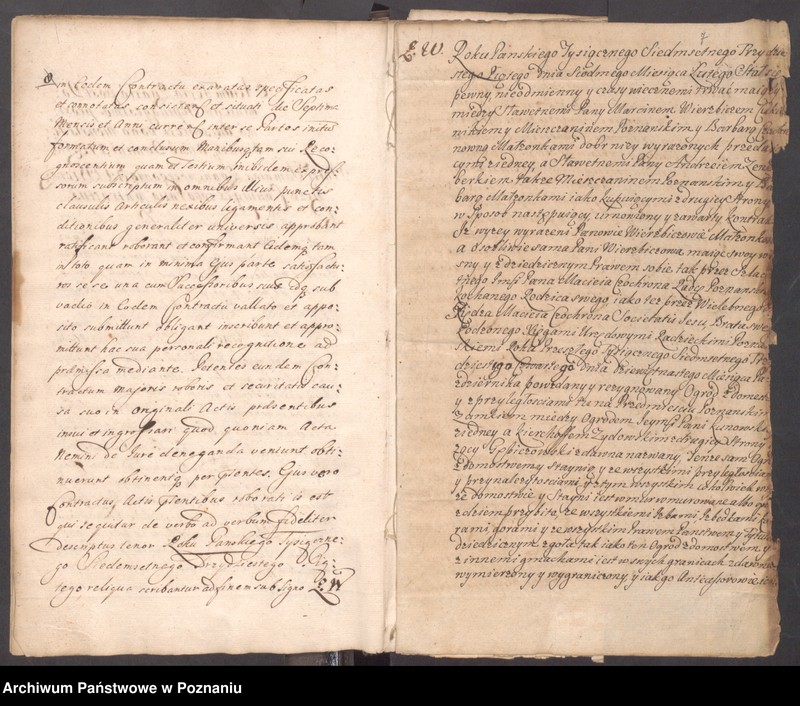 in Eodem Contractu exaratas specificatas
et connotatas consistend et situati die Septima
Mensis et Anni curren inter se Partes initus
formatum et conclusum Manibusq tam sui Reco:
gnoscentium quam et testium ibidem expres:
sorum subscriptum in omnibus illius punctis
clausulis Articulis nexibus ligamentis et con:
ditionibus generaliter universis approbant
ratificant roborant et confirmant Eidemq tam
in toto quam in minima ejus parte satisfactu:
ros se se una cum Successoribus suis idq sub
vadio in Eodem Contractu vallato et appo:
sito submittunt obligant inscribunt et appro:
mittunt hac sua personali recognitione ad
præmissa mediante. Petentes eundem Con:
tractum majoris roboris et securitatis cau:
sa suo in originali Actis præsentibus
innui et ingrossari quod, quoniam Acta
Nemini de Jure deneganda veniunt obti:
nuerunt obtinentq per ptentes. Ejus vero
Contractus, Actis ptentibus roborati is est
qui sequitur de verbo ad verbum fideliter
descriptus tenor Roku Panskiego Tysiączne:
go Siedemsetnego Trzydziestego Pią:
tego reliqua scribantur ad finem sub signo E: W
7
E: W. Roku Panskiego Tysiącznego Siedmsetnego Trzydzie
stego Piątego dnia Siodmego Miesiąca Lutego Stał się
pewny nieodmienny y czasy wiecznemi trwać maiący
między Sławetnemi Pany Marcinem Wierzbiczem
nikiem y Mieszczaninem Poznanskim y Barbarą
nowną Małzonkami dobr nizy wyrazonych przeda
cymi z iedney, a Sławetnemi Pany Andrzeiem
berkiem takze Mieszczaninem Poznanskim y Bar
barą Małzonkami iako kupuiącymi z drugiey Strony
w sposob następuiący umowiony y zawarty Kontrakt
Iz wyzey wyrazeni Panowie Wierzbiczowie Małzonkowie
a osobliwie sama Pani Wierzbiczowa, maiąc swoy wła
sny y dziedzicznym Prawem sobie tak przez Szlache
tnego Jmsci Pana Macieia Czochrona Radcę Poznanskiego
kochanego Rodzica swego, iako tez przez Wielebnego
Xiędza Macieia Czochrona Societatis Jesu Brata swego
Rodzonego Xięgami Urzędowymi Radzieckimi Poznan
skiemi Roku Przeszłego Tysiącznego Siedmsetnego Trzy
dziestego Czwartego Dnia Dziewiętnastego Miesiąca Pa
zdziernika podany y rezygnowany Ogrod z domem
y z przyległosciami tu na Przedmiesciu Poznanskim
Zamkiem między Ogrodem Jeymsc Pani Kunowskiey
z iedney a Kierchoffem Zydowskim z drugiey Strony
zący Gąsiczowski z dawna nazwany, Tenze sam Ogrod
z domostwem y Staynią y ze wszystkimi przyległosciami
y przynalezytosciami, y z tym wszystkim cokolwiek
ze domostwie y Stayni iest wmur wmurowane albo
zdziem przybito, ze wszystkiemi
rami gorami y ze wszystkim Prawem Panstwem y Tytułem
dziedzicznym zgoła tak iako ten Ogrod z domostwem y
z innemi gmachami iest w swych granicach z dawna
wymierzony y wygraniczony, y iak go Antecessorowie